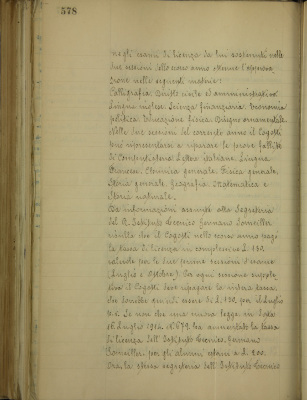 578
negli esami di licenza da lui sostenuti nelle
due sessioni dello scorso anno ottenne l'approva
zione nelle seguenti materie:
Calligrafia. Diritto civile ed amministrativo
Lingua inglese. Scienza finanziaria. Economia
politica. Educazione fisica. Disegno ornamentale.
Nelle due sessioni del corrente anno il Cogotti
può ripresentarsi a riparare le prove fallite
di Computisteria. Lettere italiane. Lingua
francese. Chimica generale. Fisica generale.
Storia generale. Geografia. Matematica e
Storia naturale.
Da informazioni assunte alla Segreteria
del R. Istituto Tecnico Germano Sommeiller
risulta che il Cogotti nello scorso anno pagò
la tassa di licenza in complessive L. 150
valevole per le due sessioni d'esame
(Luglio e Ottobre). Per ogni sessione
il Cogotti deve ripagare la intera tassa
che dovrebbe quindi essere di L. 150. per il Luglio
Se non che una nuova legge in data
16 Luglio 1914 N° 679, ha aumentato la tassa
di licenza dell'Istituto Tecnico Germano
Sommeiller per gli alunni esterni a L. 200.
Ora la stessa segreteria dell'Istituto Tecnico